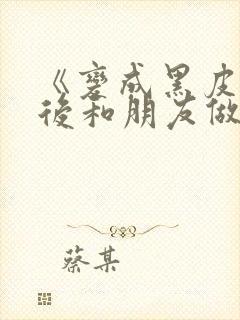 《變成黑皮
後和朋友做
蔡某